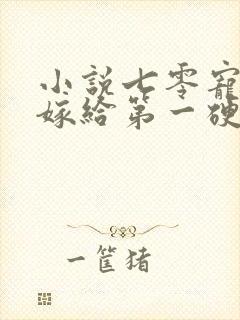 小説七零寵
嫁給第一硬
一筐猪